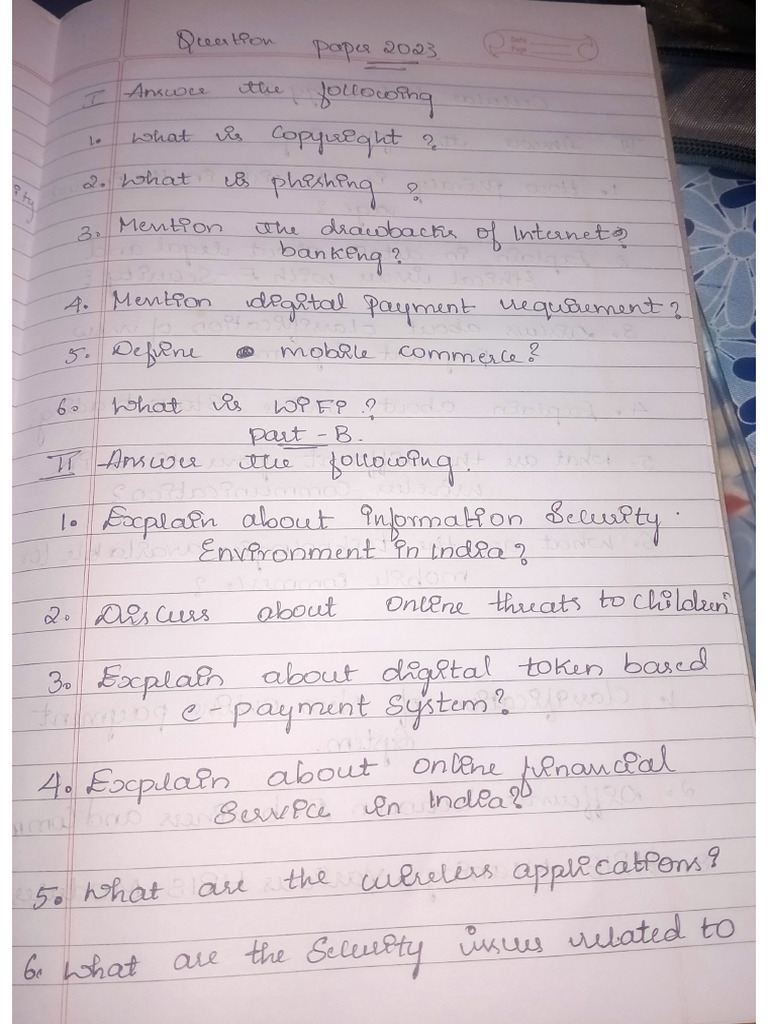 Question paper 2023
Date
Page
I Answer the following
1. What is Copyright ?
2. What is phishing ?
3. Mention the drawbacks of Internet?
banking?
4. Mention digital payment requirement?
5. Define mobile commerce?
6. What is WIFI ?
part - B.
II Answer the following.
1. Explain about information Security
Environment in India?
2. Discuss about online threats to children
3. Explain about digital token based
e-payment System?
4. Explain about online financial
Service in India?
5. What are the wireless applications?
6. What are the Security issues related to